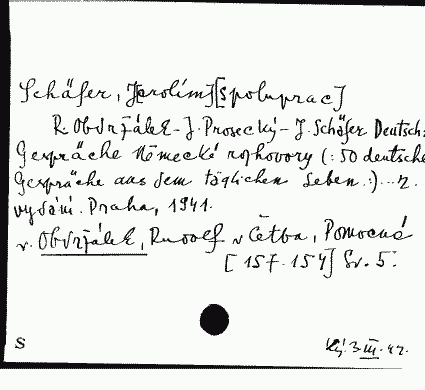 Schäfer, J[arolím] [spoluprac]
R. Obdržálek - J. Prosecký - J. Schäfer Deutsche
Gespräche Německé rozhovory (: 50 deutsche
Gespräche aus dem täglichen Leben :) ... 2.
vydání. Praha, 1941.
v. Obdržálek, Rudolf v Četba, Pomocná
[157-154] Sv. 5.
S
3.III.42.